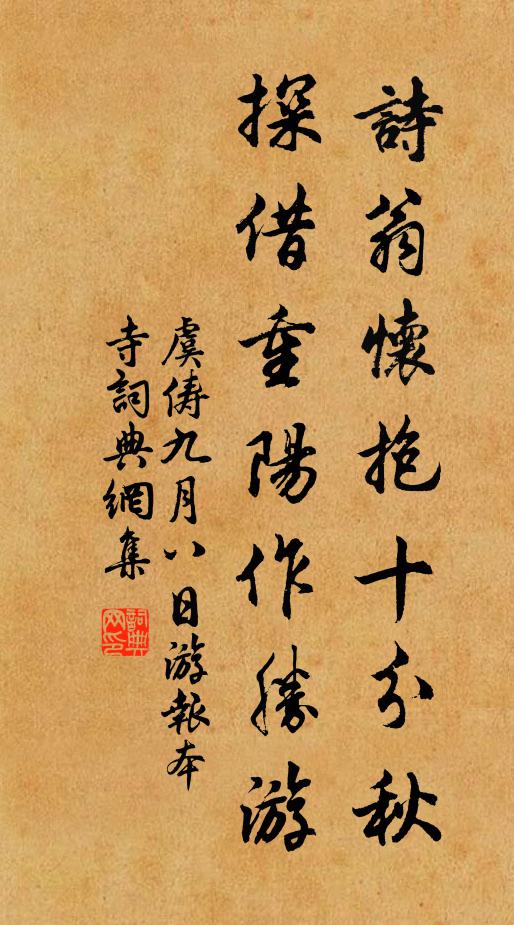 詩翁懷抱十分秋
探借重陽作勝游
虞儔九月八日游報本
寺詞典網集
詞典網印